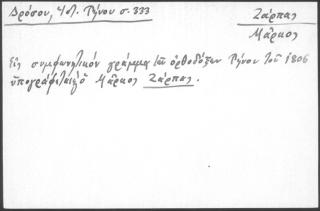 Δρόσου, Ἱστ. Τήνου σ. 333
Ζάρπας
Μᾶρκος
Εἰς συμφωνητικόν γράμμα τῶν ὀρθοδόξων Τήνου τοῦ 1806
ὑπογράφεται ὁ Μᾶρκος Ζάρπας.